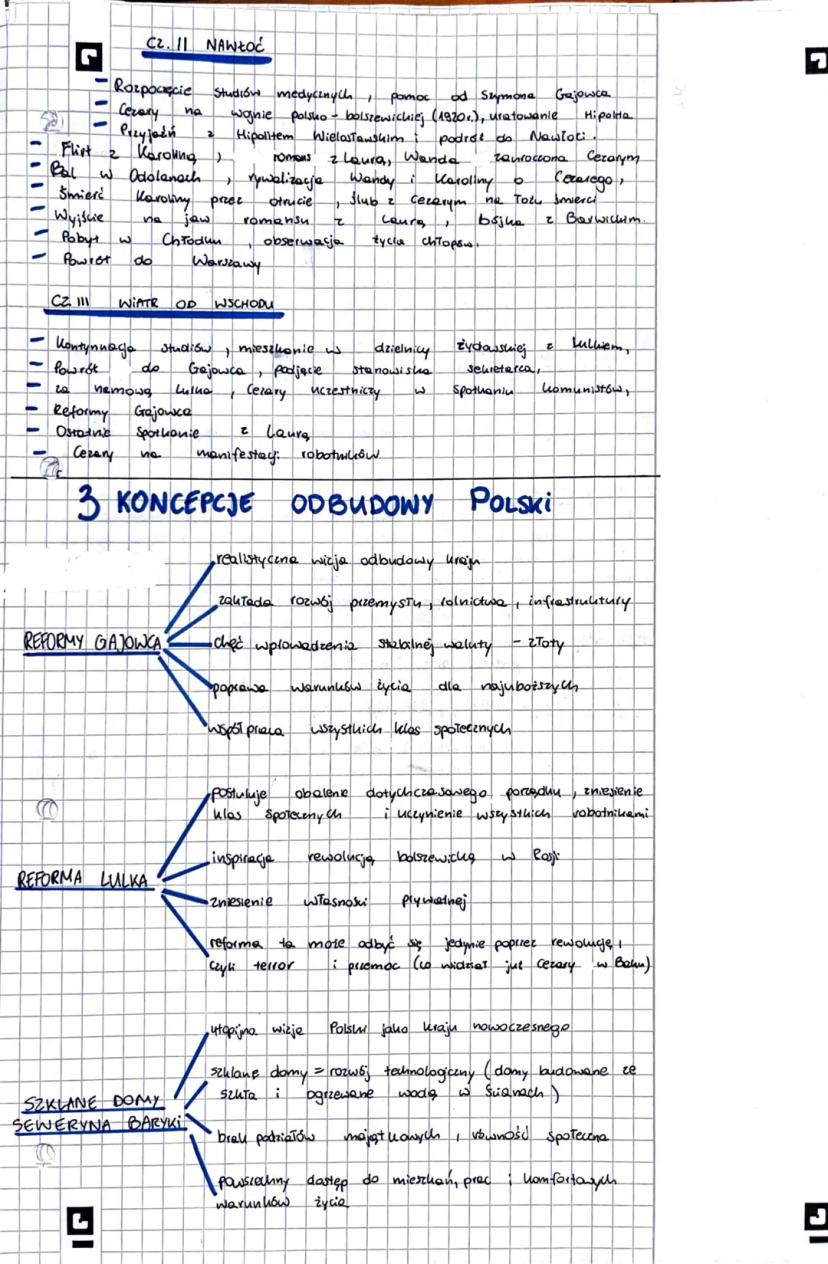 CZ. II NAWŁOĆ
- Rozpoczęcie studiów medycznych, pomoc od Szymona Gajowca
- Cezary na wojnie polsko-bolszewickiej (1920r.), uratowanie Hipolita
- Przyjaźń z Hipolitem Wielosławskim i podróż do Nawłoci.
- Flirt z Karoliną, romans z Laurą, Wanda zauroczona Cezarym
- Bal w Odolanach, rywalizacja Wandy i Karoliny o Cezarego,
- Śmierć Karoliny przez otrucie, ślub z Cezarym na łożu śmierci
- Wyjście na jaw romansu z Laurą, bójka z Barwickim.
- Pobyt w Chłodku, obserwacja życia chłopów.
- Powrót do Warszawy
CZ III WIATR OD WSCHODU
- Kontynuacja studiów, mieszkanie w dzielnicy żydowskiej z Lulkiem,
- Powrót do Gajowca, podjęcie stanowiska sekretarza,
- za namową Lulka, Cezary uczestniczy w spotkaniu komunistów,
- Reformy Gajowca
- Ostatnie spotkanie z Laurą
- Cezary na manifestacji robotników
3 KONCEPCJE ODBUDOWY POLSKI
realistyczna wizja odbudowy kraju
zakłada rozwój przemysłu, rolnictwa, infrastruktury
REFORMY GAJOWCA
chęć wprowadzenia stabilnej waluty - złoty
poprawa warunków życia dla najuboższych
współpraca wszystkich klas społecznych
postuluje obalenie dotychczasowego porządku, zniesienie
klas społecznych i uczynienie wszystkich robotnikami
inspiracja rewolucją bolszewicką w Rosji
REFORMA LULKA
zniesienie własności prywatnej
reforma ta może odbyć się jedynie poprzez rewolucję,
czyli terror i przemoc (co widział już Cezary w Baku)
utopijna wizja Polski jako kraju nowoczesnego
szklane domy = rozwój technologiczny (domy budowane ze
szkła i ogrzewane wodą w ścianach)
SZKLANE DOMY
SEWERYNA BARYKI
brak podziałów majątkowych, równość społeczna
powszechny dostęp do mieszkań, prac i komfortowych
warunków życia